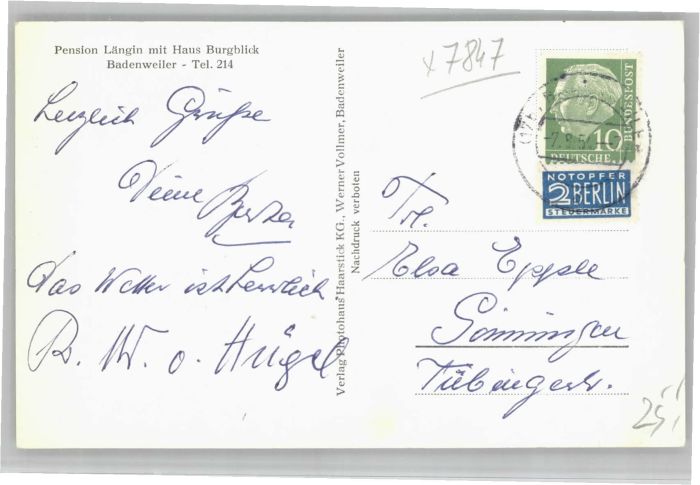 Pension Längin mit Haus Burgblick
Badenweiler - Tel. 214
Herzlich Grüße
Deine
Das Wetter ist herrlich.
B. W. v. Hügel
Verlag Photohaus Haarstick KG., Werner Vollmer, Badenweiler
Nachdruck verboten
x 7847
10
BUNDESPOST
DEUTSCHE
NOTOPFER
2 BERLIN
STEUERMARKE
Frl.
Elsa Eppele
Gönningen
Tübingerstr.
25,-